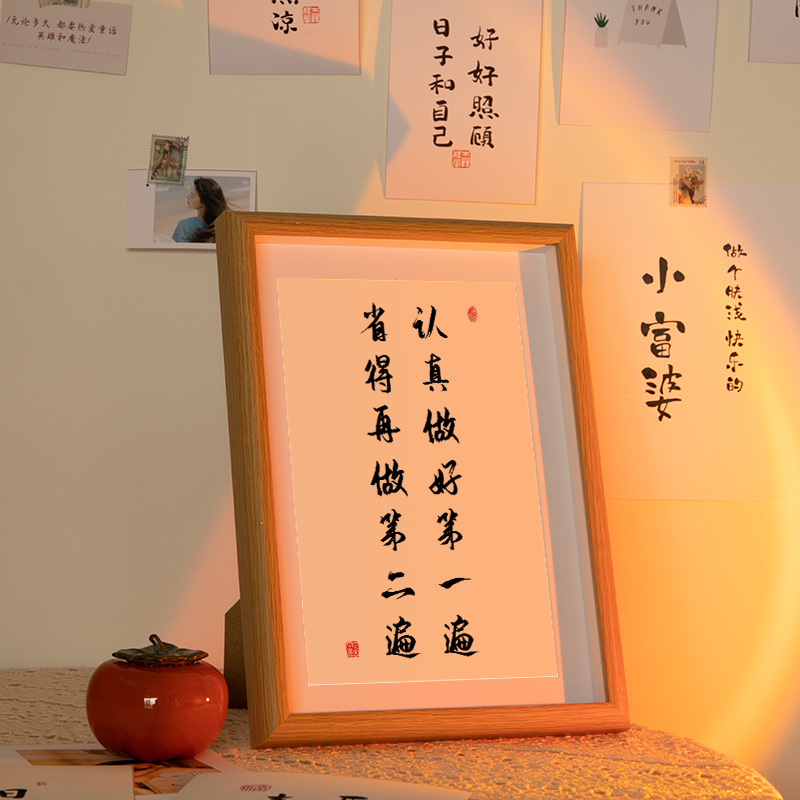 /无论多大 都要热爱童话
英雄和魔法/
凉
好好照顾
日子和自己
THANK
YOU
做个肤浅 快乐的
小富婆
认真做好第一遍
省得再做第二遍